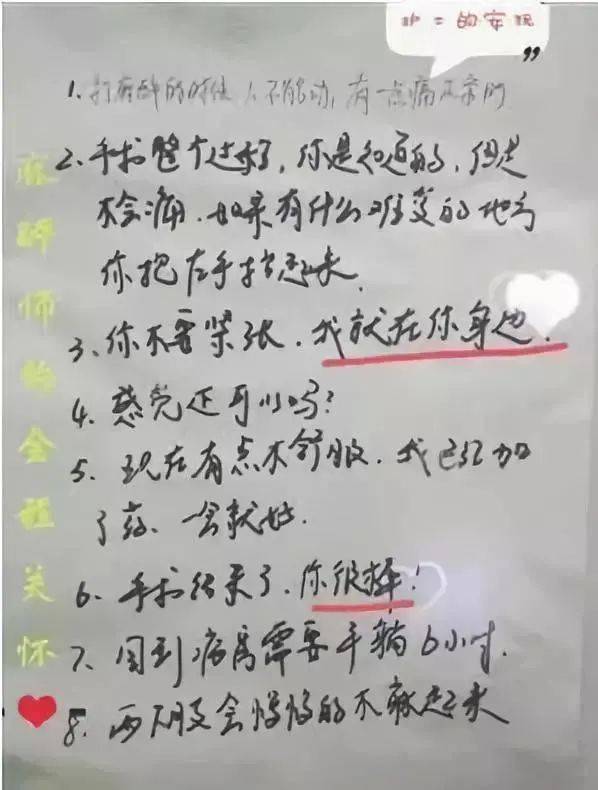 护士的
1、打麻醉的时候人不能动，有一点痛正常的
2、手术整个过程，你是知道的，但是
不会痛．如果有什么难受的地方
你把左手抬起来．
3、你不要紧张．我就在你身边．
4、感觉还可以吗？
5、现在有点不舒服．我已经加
了药．一会就好．
6、手术结束了．你很棒！
7、回到病房需要平躺6小时．
8、两下肢会慢慢的不麻起来
麻醉师的全程关怀